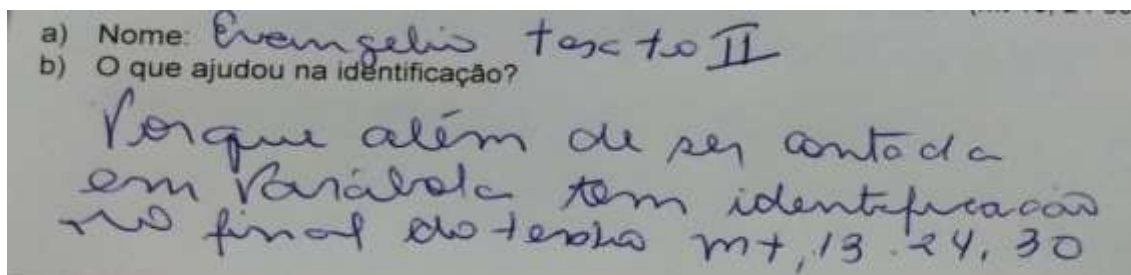 a) Nome: Evangelio texto II
b) O que ajudou na identificação?
Porque além de ser contada
em Parábola tem identificacão
no final do texto mt, 13.24, 30